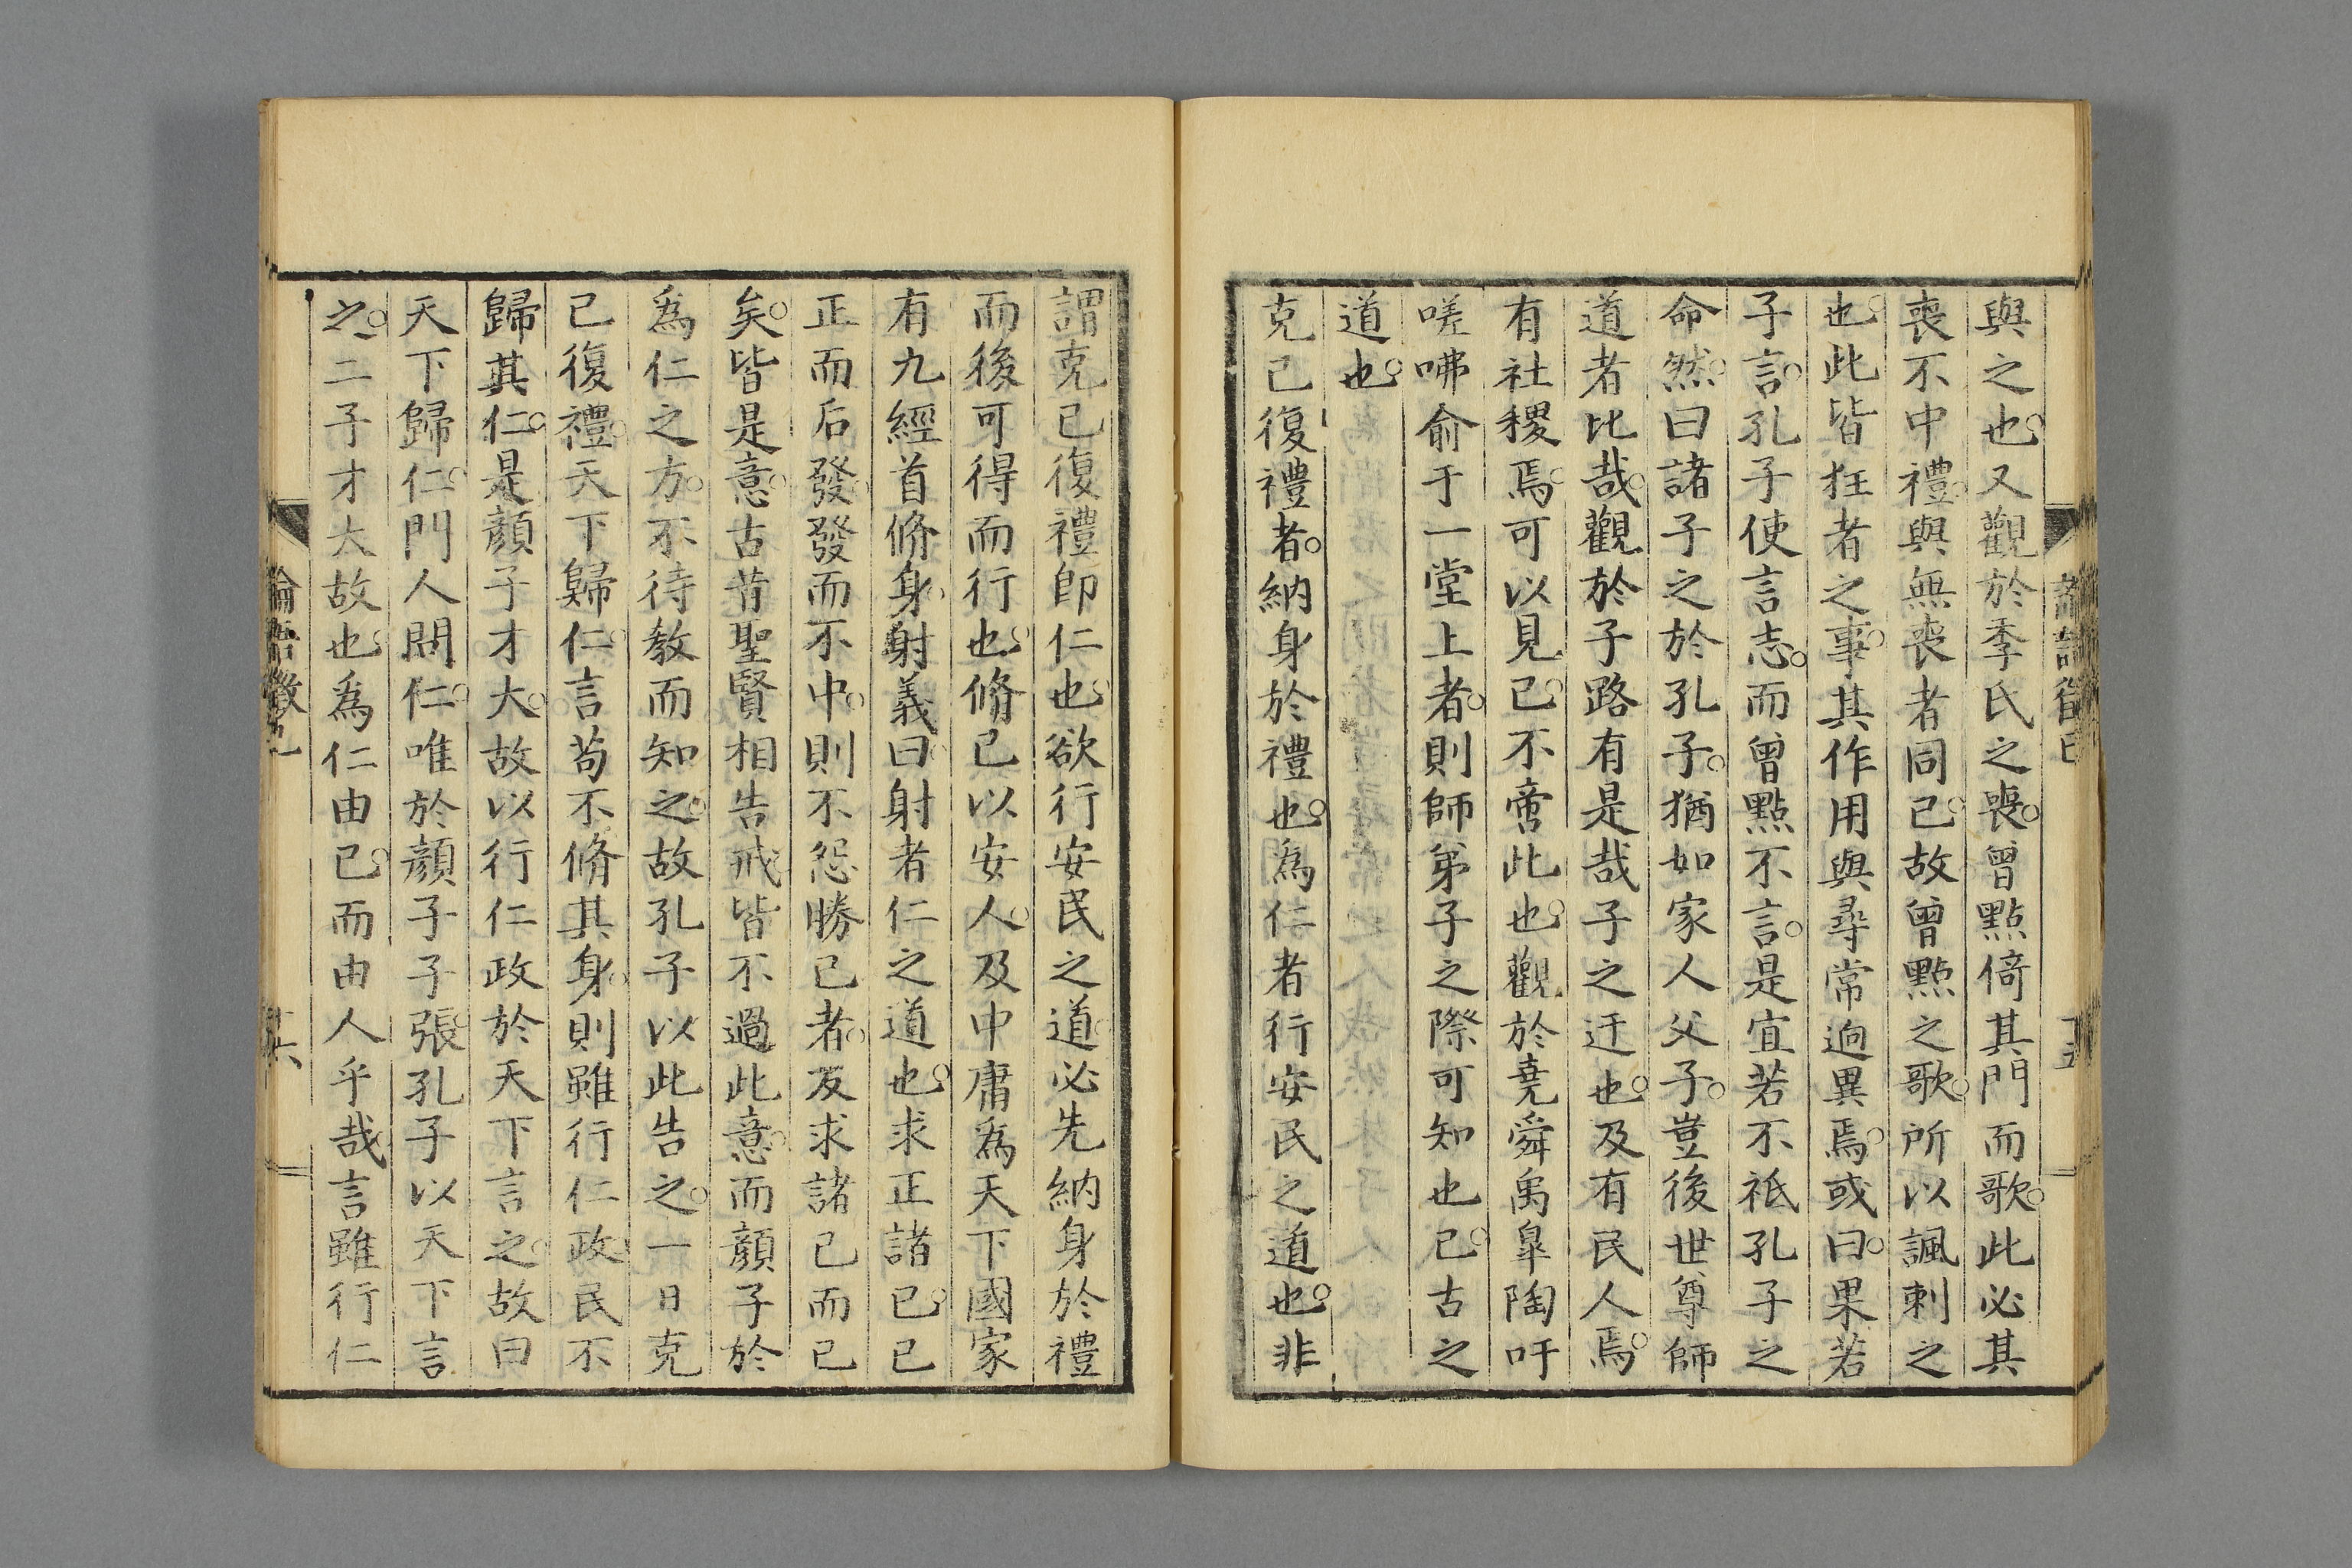 與之也又觀於季氏之喪曾點倚其門而歌此必其
喪不中禮與無喪者同已故曾點之歌所以諷刺之
也此皆狂者之事其作用與尋常逈異焉或曰果若
子言孔子使言志而曾點不言是宜若不祗孔子之
命然曰諸子之於孔子猶如家人父子豈後世尊師
道者比哉觀於子路有是哉子之迂也及有民人焉
有社稷焉可以見已不啻此也觀於堯舜禹皐陶吁
嗟咈俞于一堂上者則師弟子之際可知也已古之
道也
克己復禮者納身於禮也爲仁者行安民之道也非
謂克己復禮即仁也欲行安民之道必先納身於禮
而後可得而行也脩己以安人及中庸爲天下國家
有九經首脩身射義曰射者仁之道也求正諸己己
正而后發發而不中則不怨勝己者反求諸己而已
矣皆是意古昔聖賢相告戒皆不過此意而顏子於
爲仁之方不待敎而知之故孔子以此告之一日克
己復禮天下歸仁言苟不脩其身則雖行仁政民不
歸其仁是顏子才大故以行仁政於天下言之故曰
天下歸仁門人問仁唯於顏子子張孔子以天下言
之二子才大故也爲仁由己而由人乎哉言雖行仁
論語徵 十六